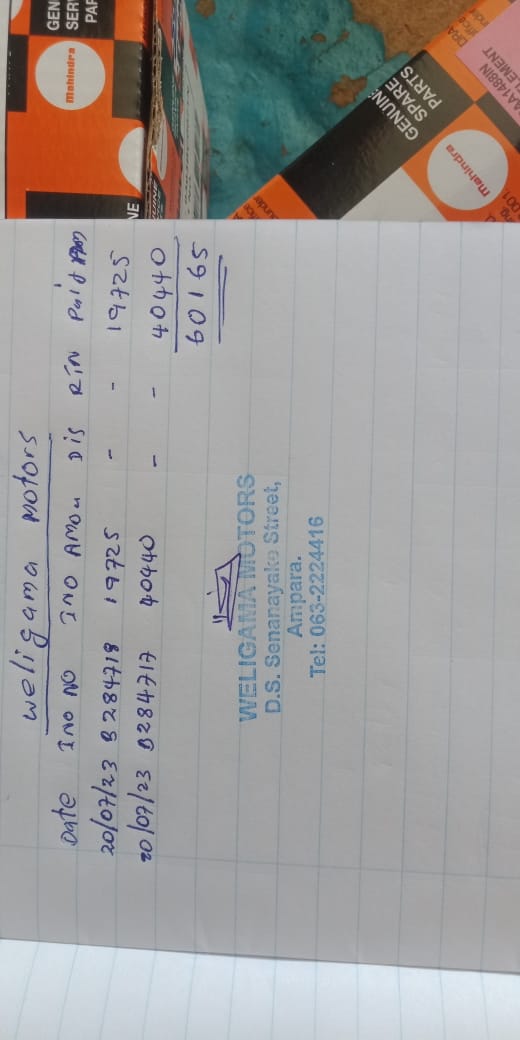 weligama motors
Date Ino No Ino Amou Dis Rin Paid
20/07/23 B284718 19725 - - 19725
20/07/23 B284717 40440 - - 40440
60165
WELIGAMA MOTORS
D.S. Senanayake Street,
Ampara.
Tel: 063-2224416
GEN
SER
PAR
mahindra
NE
GENUINE
SPARE
PARTS
Mahindra
AA1488IN
LEMENT